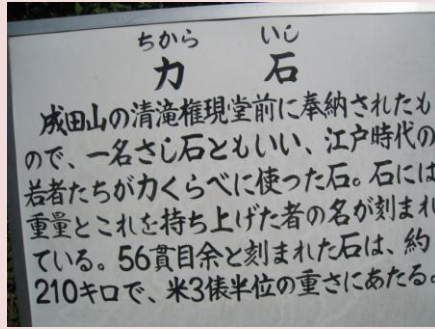 ちから いし
力 石
成田山の清滝権現堂前に奉納されたも
ので、一名さし石ともいい、江戸時代の
若者たちが力くらべに使った石。石には
重量とこれを持ち上げた者の名が刻まれ
ている。56貫目余と刻まれた石は、約
210キロで、米3俵半位の重さにあたる。